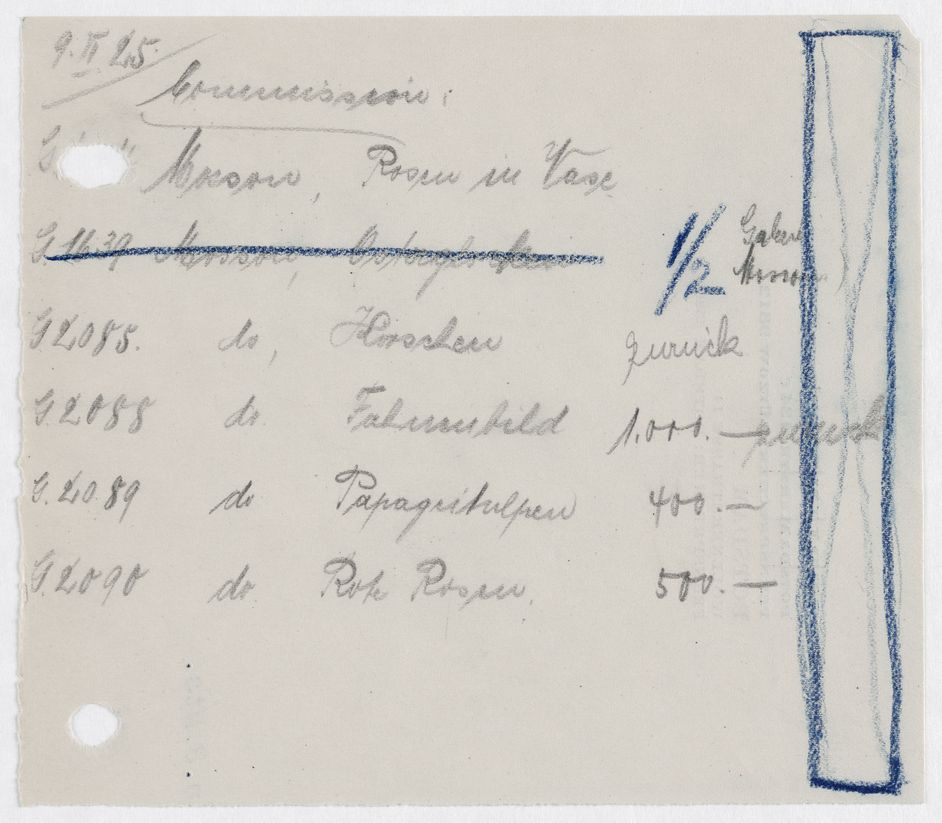 9. II 25.
Commission:
Mosson, Rosen in Vase
G 1639 Mosson, Osterglocken 1/2 Galerie Mosson
G 2085. do, Kirschen zurück
G 2088 do. Fahnenbild 1.000.— zurück
G. 2089 do Papageitulpen 400.—
G 2090 do Rote Rosen. 500.—